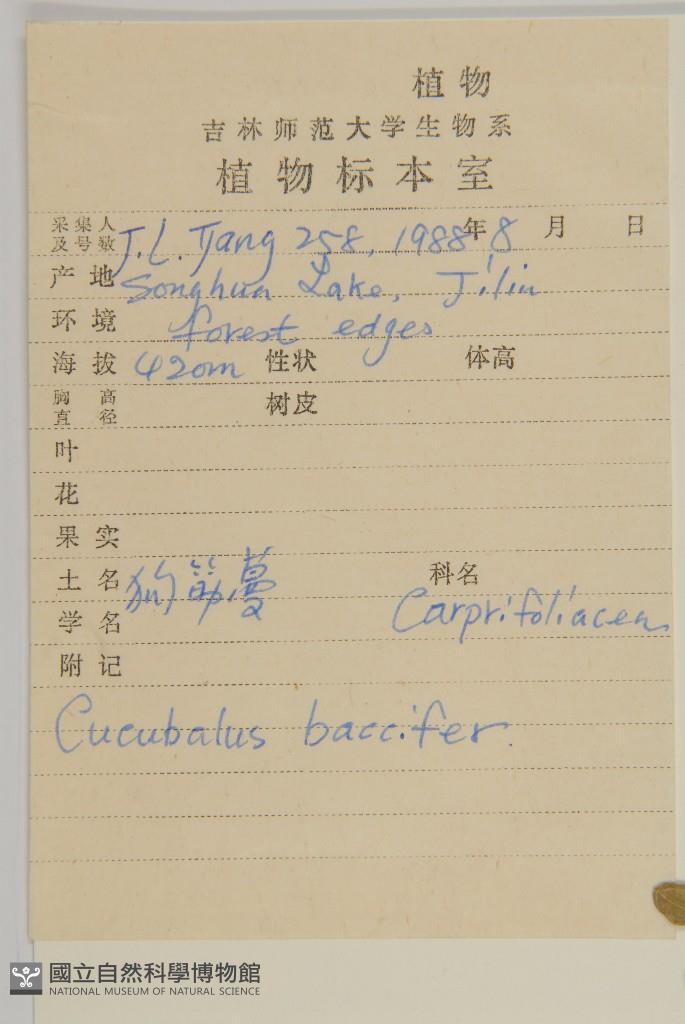 植物
吉林师范大学生物系
植物标本室
采集人及号数 J.L. Tjang 258, 1988年 8 月 日
产地 Songhua Lake, Jilin
环境 forest edges
海拔 420m 性状 体高
胸高直径 树皮
叶
花
果实
土名 狗筋蔓 科名
学名 Carprifoliacea
附记
Cucubalus baccifer.
國立自然科學博物館
NATIONAL MUSEUM OF NATURAL SCIENCE